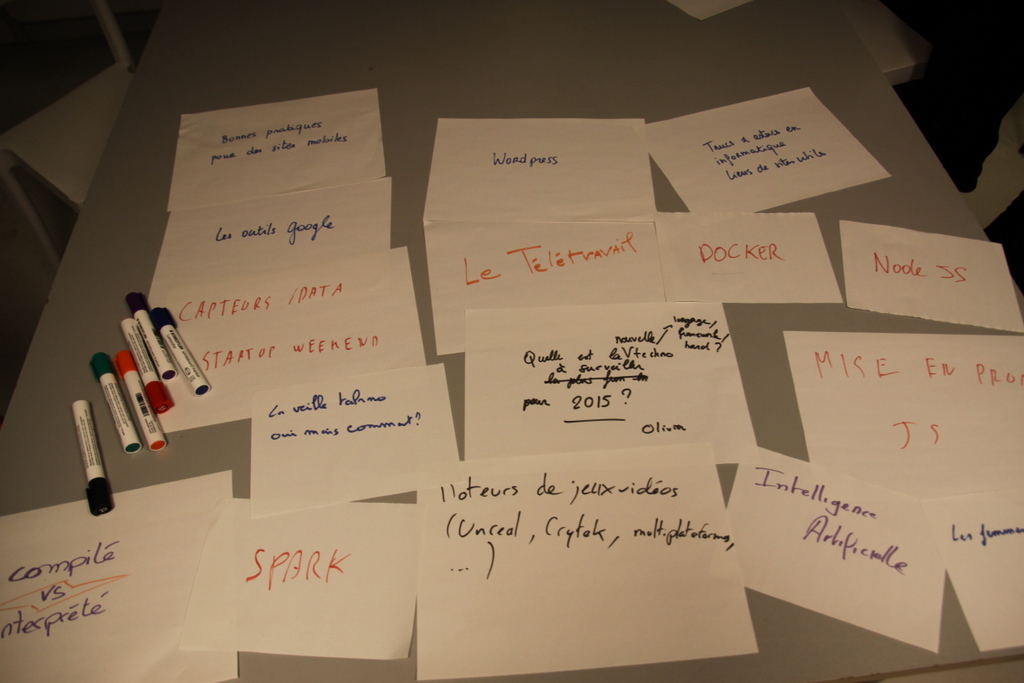 Bonnes pratiques
pour des sites mobiles
Wordpress
Trucs & astuces en
informatique
Liens de sites utils
Les outils Google
Le Télétravail
DOCKER
Node JS
CAPTEURS / DATA
STARTUP WEEKEND
Quelle est la nouvelle techno
langage,
framework,
hard?
à surveiller
pour 2015 ?
Olivier
MISE EN PROD
JS
La veille techno
oui mais comment?
Moteurs de jeux vidéos
(Unreal, Crytek, multiplateforme,
... )
Intelligence
Artificielle
Les femmes
compilé
vs
interprété
SPARK